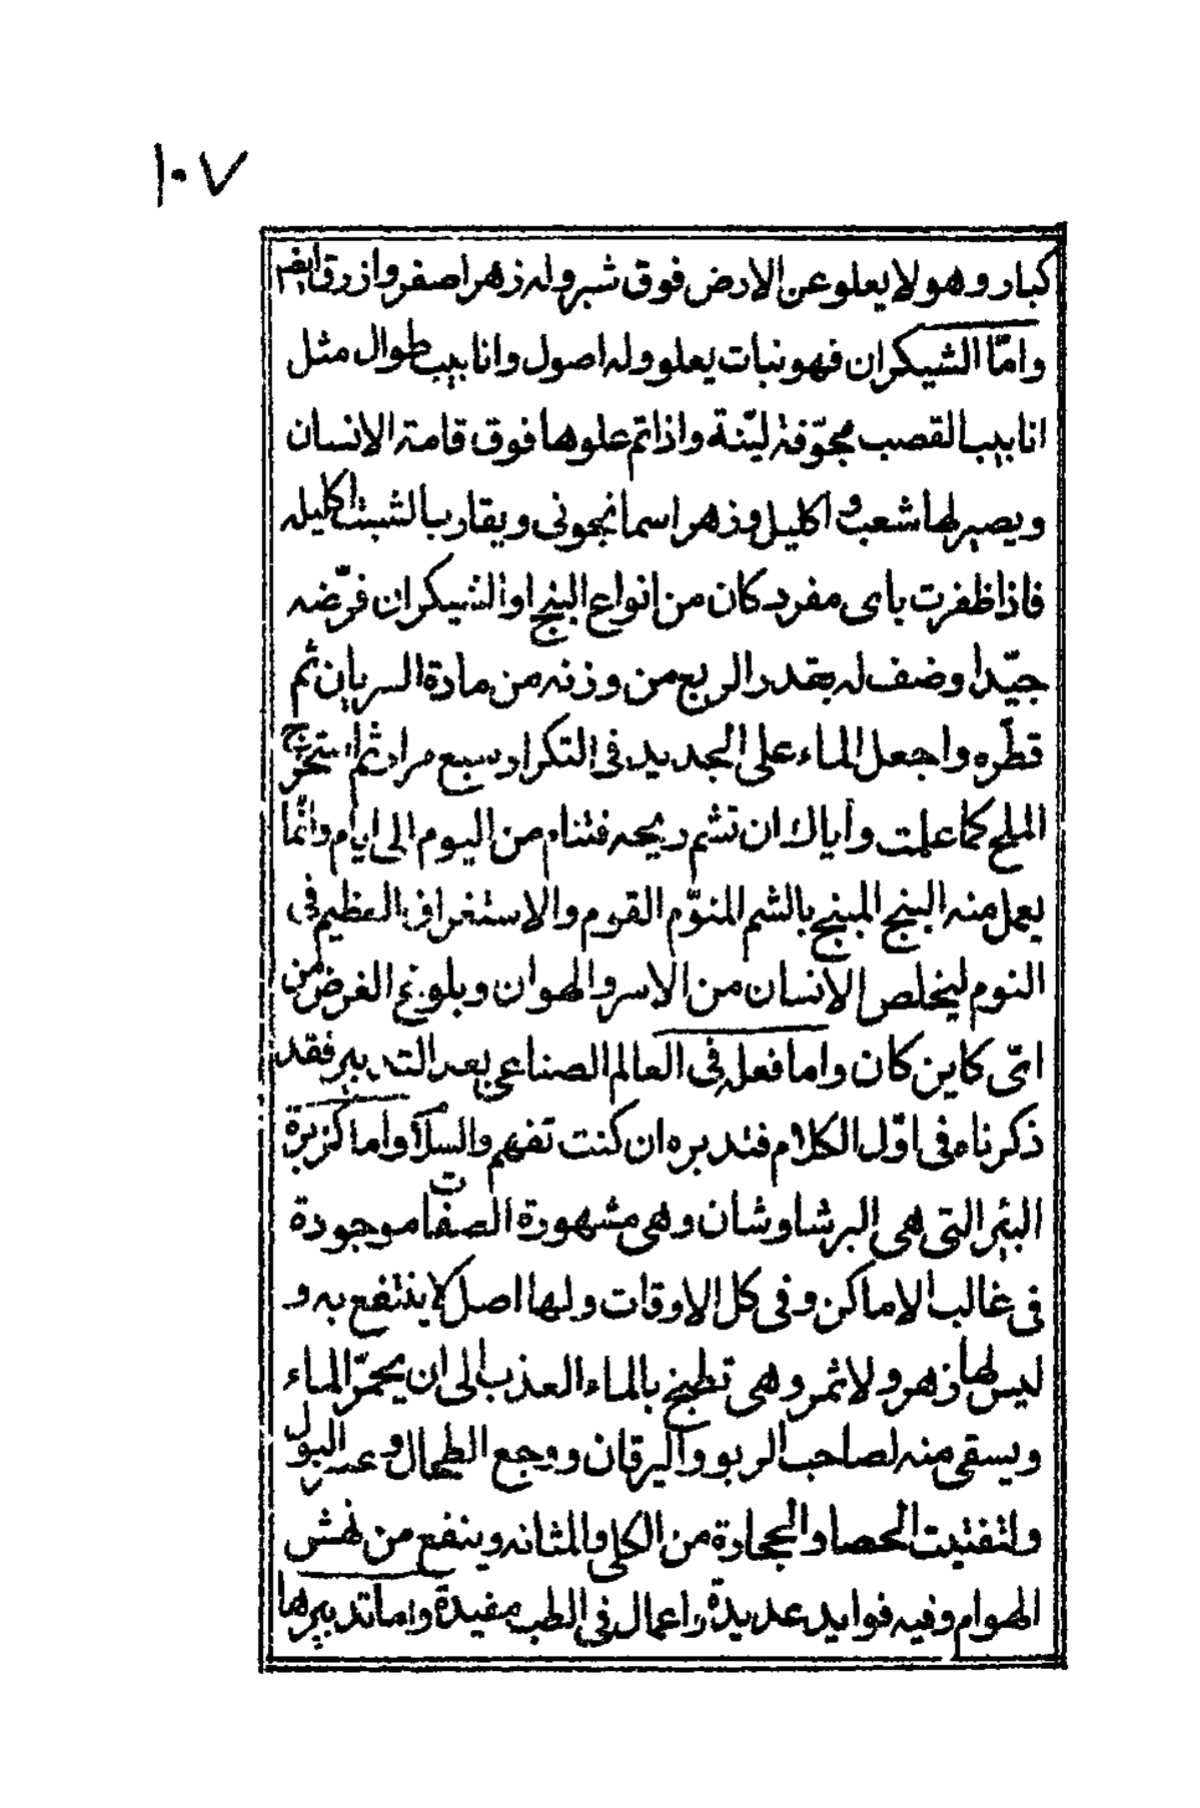 ١٠٧
كبار وهو لا يعلو عن الارض فوق شبر وله زهر اصفر وازرق ايضا
وامّا الشيكران فهو نبات يعلو وله اصول وانابيب طوال مثل
انابيب القصب مجوّفة ليّنة واذا تم علوها فوق قامة الانسان
ويصير لها شعب و اكليل وزهر اسمانجونى ويقارب الشبث اكليله
فاذا ظفرت باى مفرد كان من انواع البنج او الشيكران فرّضه
جيّدا وضف له بقدر الربع من وزنه من مادة السريان ثم
قطّره واجعل الماء على الجديد فى التكرار سبع مرار ثم استخرج
الملح كما علمت واياك ان تشم ريحه فتنام من اليوم الى ايام وانّما
يعمل منه البنج المبنج بالشم المنوّم القوم والاستغراق العظيم فى
النوم ليخلص الانسان من الاسر والهوان وبلوغ الغرض من
اىّ كاين كان واما فعله فى العالم الصناعى بعد التدبير فقد
ذكرناه فى اوّل الكلام فتدبره ان كنت تفهم والسلام واما كزبرة
البئر التى هى البرشاوشان وهى مشهورة الصفات موجودة
فى غالب الاماكن وفى كل الاوقات ولها اصل لا ينتفع به و
ليس لها زهر ولا ثمر وهى تطبخ بالماء العذب الى ان يحمرّ الماء
ويسقى منه لصاحب الربو واليرقان ووجع الطحال و عسر البول
ولتفتيت الحصا والحجارة من الكلى والمثانه وينفع من نهش
الهوام وفيه فوايد عديدة واعمال فى الطب مفيدة واما تدبيرها